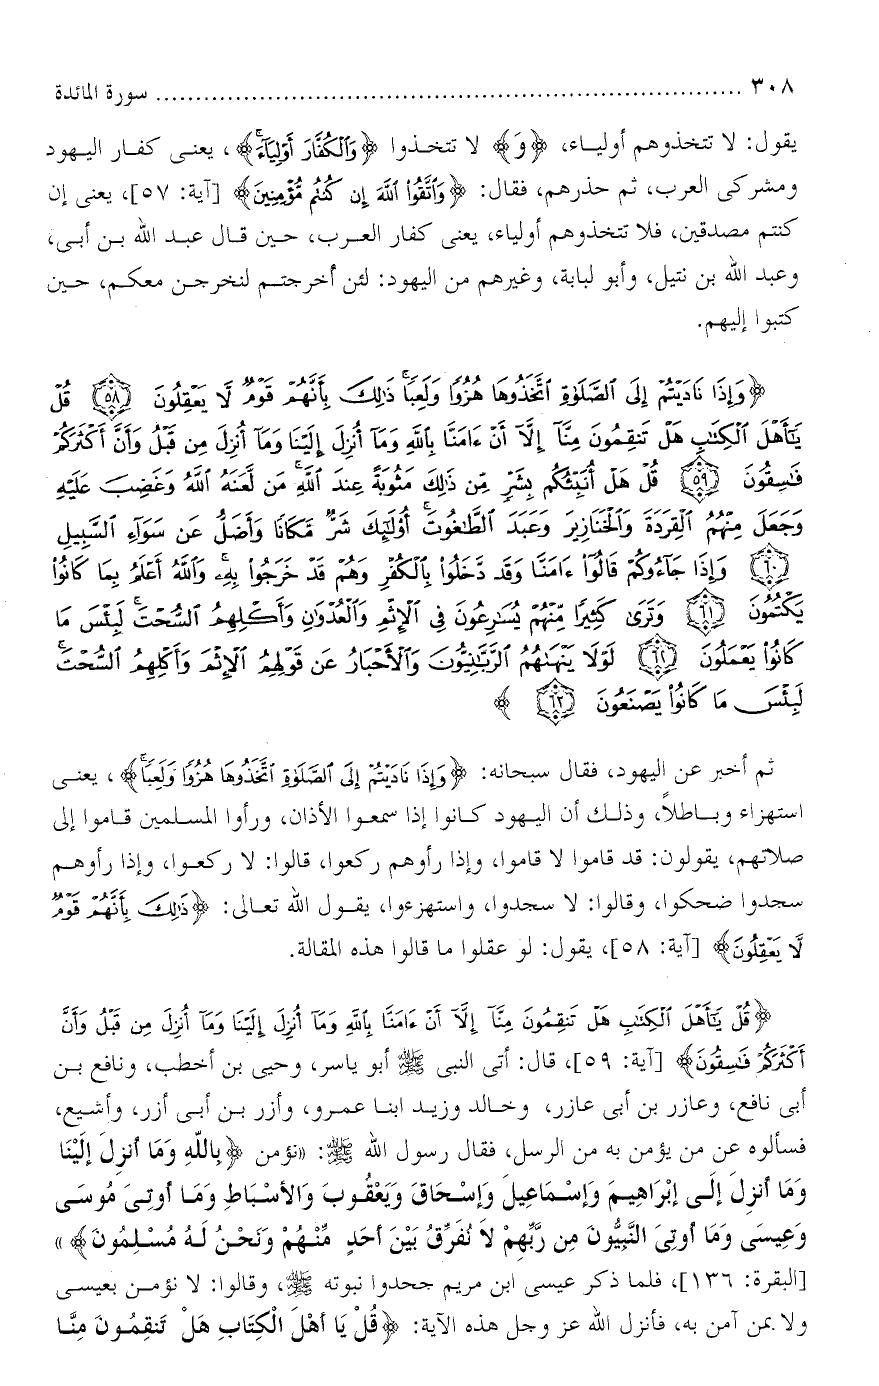 ٣٠٨ ........................................ سورة المائدة
يقول: لا تتخذوهم أولياء، ﴿وَ﴾ لا تتخذوا ﴿وَٱلْكُفَّارَ أَوْلِيَآءَ﴾، يعنى كفار اليهود
ومشركى العرب، ثم حذرهم، فقال: ﴿وَٱتَّقُوا۟ ٱللَّهَ إِن كُنتُم مُّؤْمِنِينَ﴾ [آية: ٥٧]، يعنى إن
كنتم مصدقين، فلا تتخذوهم أولياء، يعنى كفار العرب، حين قال عبد الله بن أبى،
وعبد الله بن نتيل، وأبو لبابة، وغيرهم من اليهود: لئن أخرجتم لنخرجن معكم، حين
كتبوا إليهم.
﴿وَإِذَا نَادَيْتُمْ إِلَى ٱلصَّلَوٰةِ ٱتَّخَذُوهَا هُزُوًا وَلَعِبًا ۚ ذَٰلِكَ بِأَنَّهُمْ قَوْمٌ لَّا يَعْقِلُونَ ٥٨ قُلْ
يَـٰٓأَهْلَ ٱلْكِتَـٰبِ هَلْ تَنقِمُونَ مِنَّآ إِلَّآ أَنْ ءَامَنَّا بِٱللَّهِ وَمَآ أُنزِلَ إِلَيْنَا وَمَآ أُنزِلَ مِن قَبْلُ وَأَنَّ أَكْثَرَكُمْ
فَـٰسِقُونَ ٥٩ قُلْ هَلْ أُنَبِّئُكُم بِشَرٍّ مِّن ذَٰلِكَ مَثُوبَةً عِندَ ٱللَّهِ ۚ مَن لَّعَنَهُ ٱللَّهُ وَغَضِبَ عَلَيْهِ
وَجَعَلَ مِنْهُمُ ٱلْقِرَدَةَ وَٱلْخَنَازِيرَ وَعَبَدَ ٱلطَّـٰغُوتَ ۚ أُو۟لَـٰٓئِكَ شَرٌّ مَّكَانًا وَأَضَلُّ عَن سَوَآءِ ٱلسَّبِيلِ
٦٠ وَإِذَا جَآءُوكُمْ قَالُوٓا۟ ءَامَنَّا وَقَد دَّخَلُوا۟ بِٱلْكُفْرِ وَهُمْ قَدْ خَرَجُوا۟ بِهِۦ ۚ وَٱللَّهُ أَعْلَمُ بِمَا كَانُوا۟
يَكْتُمُونَ ٦١ وَتَرَىٰ كَثِيرًا مِّنْهُمْ يُسَـٰرِعُونَ فِى ٱلْإِثْمِ وَٱلْعُدْوَٰنِ وَأَكْلِهِمُ ٱلسُّحْتَ ۚ لَبِئْسَ مَا
كَانُوا۟ يَعْمَلُونَ ٦٢ لَوْلَا يَنْهَىٰهُمُ ٱلرَّبَّـٰنِيُّونَ وَٱلْأَحْبَارُ عَن قَوْلِهِمُ ٱلْإِثْمَ وَأَكْلِهِمُ ٱلسُّحْتَ ۚ
لَبِئْسَ مَا كَانُوا۟ يَصْنَعُونَ ٦٣ ﴾
ثم أخبر عن اليهود، فقال سبحانه: ﴿وَإِذَا نَادَيْتُمْ إِلَى ٱلصَّلَوٰةِ ٱتَّخَذُوهَا هُزُوًا وَلَعِبًا ۚ﴾، يعنى
استهزاء وباطلاً، وذلك أن اليهود كانوا إذا سمعوا الأذان، ورأوا المسلمين قاموا إلى
صلاتهم، يقولون: قد قاموا لا قاموا، وإذا رأوهم ركعوا، قالوا: لا ركعوا، وإذا رأوهم
سجدوا ضحكوا، وقالوا: لا سجدوا، واستهزءوا، يقول الله تعالى: ﴿ذَٰلِكَ بِأَنَّهُمْ قَوْمٌ
لَّا يَعْقِلُونَ﴾ [آية: ٥٨]، يقول: لو عقلوا ما قالوا هذه المقالة.
﴿قُلْ يَـٰٓأَهْلَ ٱلْكِتَـٰبِ هَلْ تَنقِمُونَ مِنَّآ إِلَّآ أَنْ ءَامَنَّا بِٱللَّهِ وَمَآ أُنزِلَ إِلَيْنَا وَمَآ أُنزِلَ مِن قَبْلُ وَأَنَّ
أَكْثَرَكُمْ فَـٰسِقُونَ﴾ [آية: ٥٩]، قال: أتى النبى ﷺ أبو ياسر، وحيى بن أخطب، ونافع بن
أبى نافع، وعازر بن أبى عازر، وخالد وزيد ابنا عمرو، وأزر بن أبى أزر، وأشيع،
فسألوه عن من يؤمن به من الرسل، فقال رسول الله ﷺ: «نؤمن ﴿بِاللّهِ وَمَا أُنزِلَ إِلَيْنَا
وَمَا أُنزِلَ إِلَى إِبْرَاهِيمَ وَإِسْمَاعِيلَ وَإِسْحَاقَ وَيَعْقُوبَ وَالأسْبَاطِ وَمَا أُوتِىَ مُوسَى
وَعِيسَى وَمَا أُوتِىَ النَّبِيُّونَ مِن رَّبِّهِمْ لاَ نُفَرِّقُ بَيْنَ أَحَدٍ مِّنْهُمْ وَنَحْنُ لَهُ مُسْلِمُونَ﴾»
[البقرة: ١٣٦]، فلما ذكر عيسى ابن مريم جحدوا نبوته ﷺ، وقالوا: لا نؤمن بعيسى
ولا بمن آمن به، فأنزل الله عز وجل هذه الآية: ﴿قُلْ يَا أَهْلَ الْكِتَابِ هَلْ تَنقِمُونَ مِنَّا